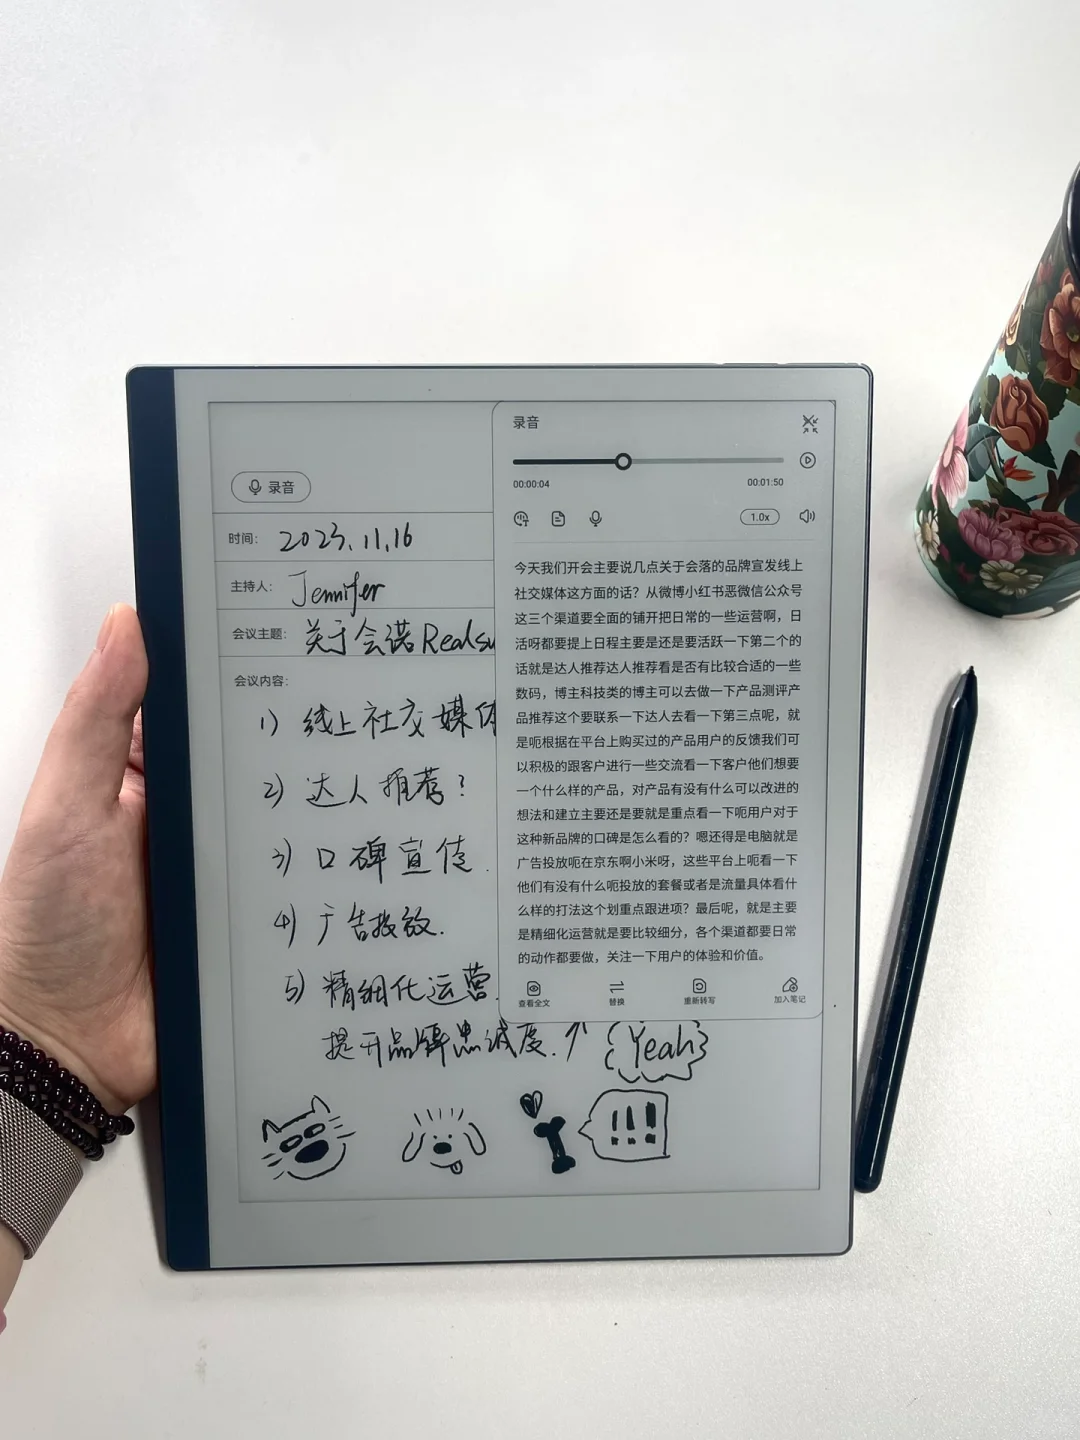 录音
时间：
2023.11.16
主持人：
Jennifer
会议主题：
关于会诺Reals
会议内容：
1) 线上社交媒体
2) 达人推荐？
3) 口碑宣传.
4) 广告投放.
5) 精细化运营.
提升品牌忠诚度.个
Yeah
!!!
录音
00:00:04
00:01:50
1.0x
今天我们开会主要说几点关于会落的品牌宣发线上
社交媒体这方面的话？从微博小红书恶微信公众号
这三个渠道要全面的铺开把日常的一些运营啊，日
活呀都要提上日程主要是还是要活跃一下第二个的
话就是达人推荐达人推荐看是否有比较合适的一些
数码，博主科技类的博主可以去做一下产品测评产
品推荐这个要联系一下达人去看一下第三点呢，就
是呃根据在平台上购买过的产品用户的反馈我们可
以积极的跟客户进行一些交流看一下客户他们想要
一个什么样的产品，对产品有没有什么可以改进的
想法和建立主要还是要就是重点看一下呃用户对于
这种新品牌的口碑是怎么看的？嗯还得是电脑就是
广告投放呃在京东啊小米呀，这些平台上呃看一下
他们有没有什么呃投放的套餐或者是流量具体看什
么样的打法这个划重点跟进项？最后呢，就是主要
是精细化运营就是要比较细分，各个渠道都要日常
的动作都要做，关注一下用户的体验和价值。
查看全文
替换
重新转写
加入笔记